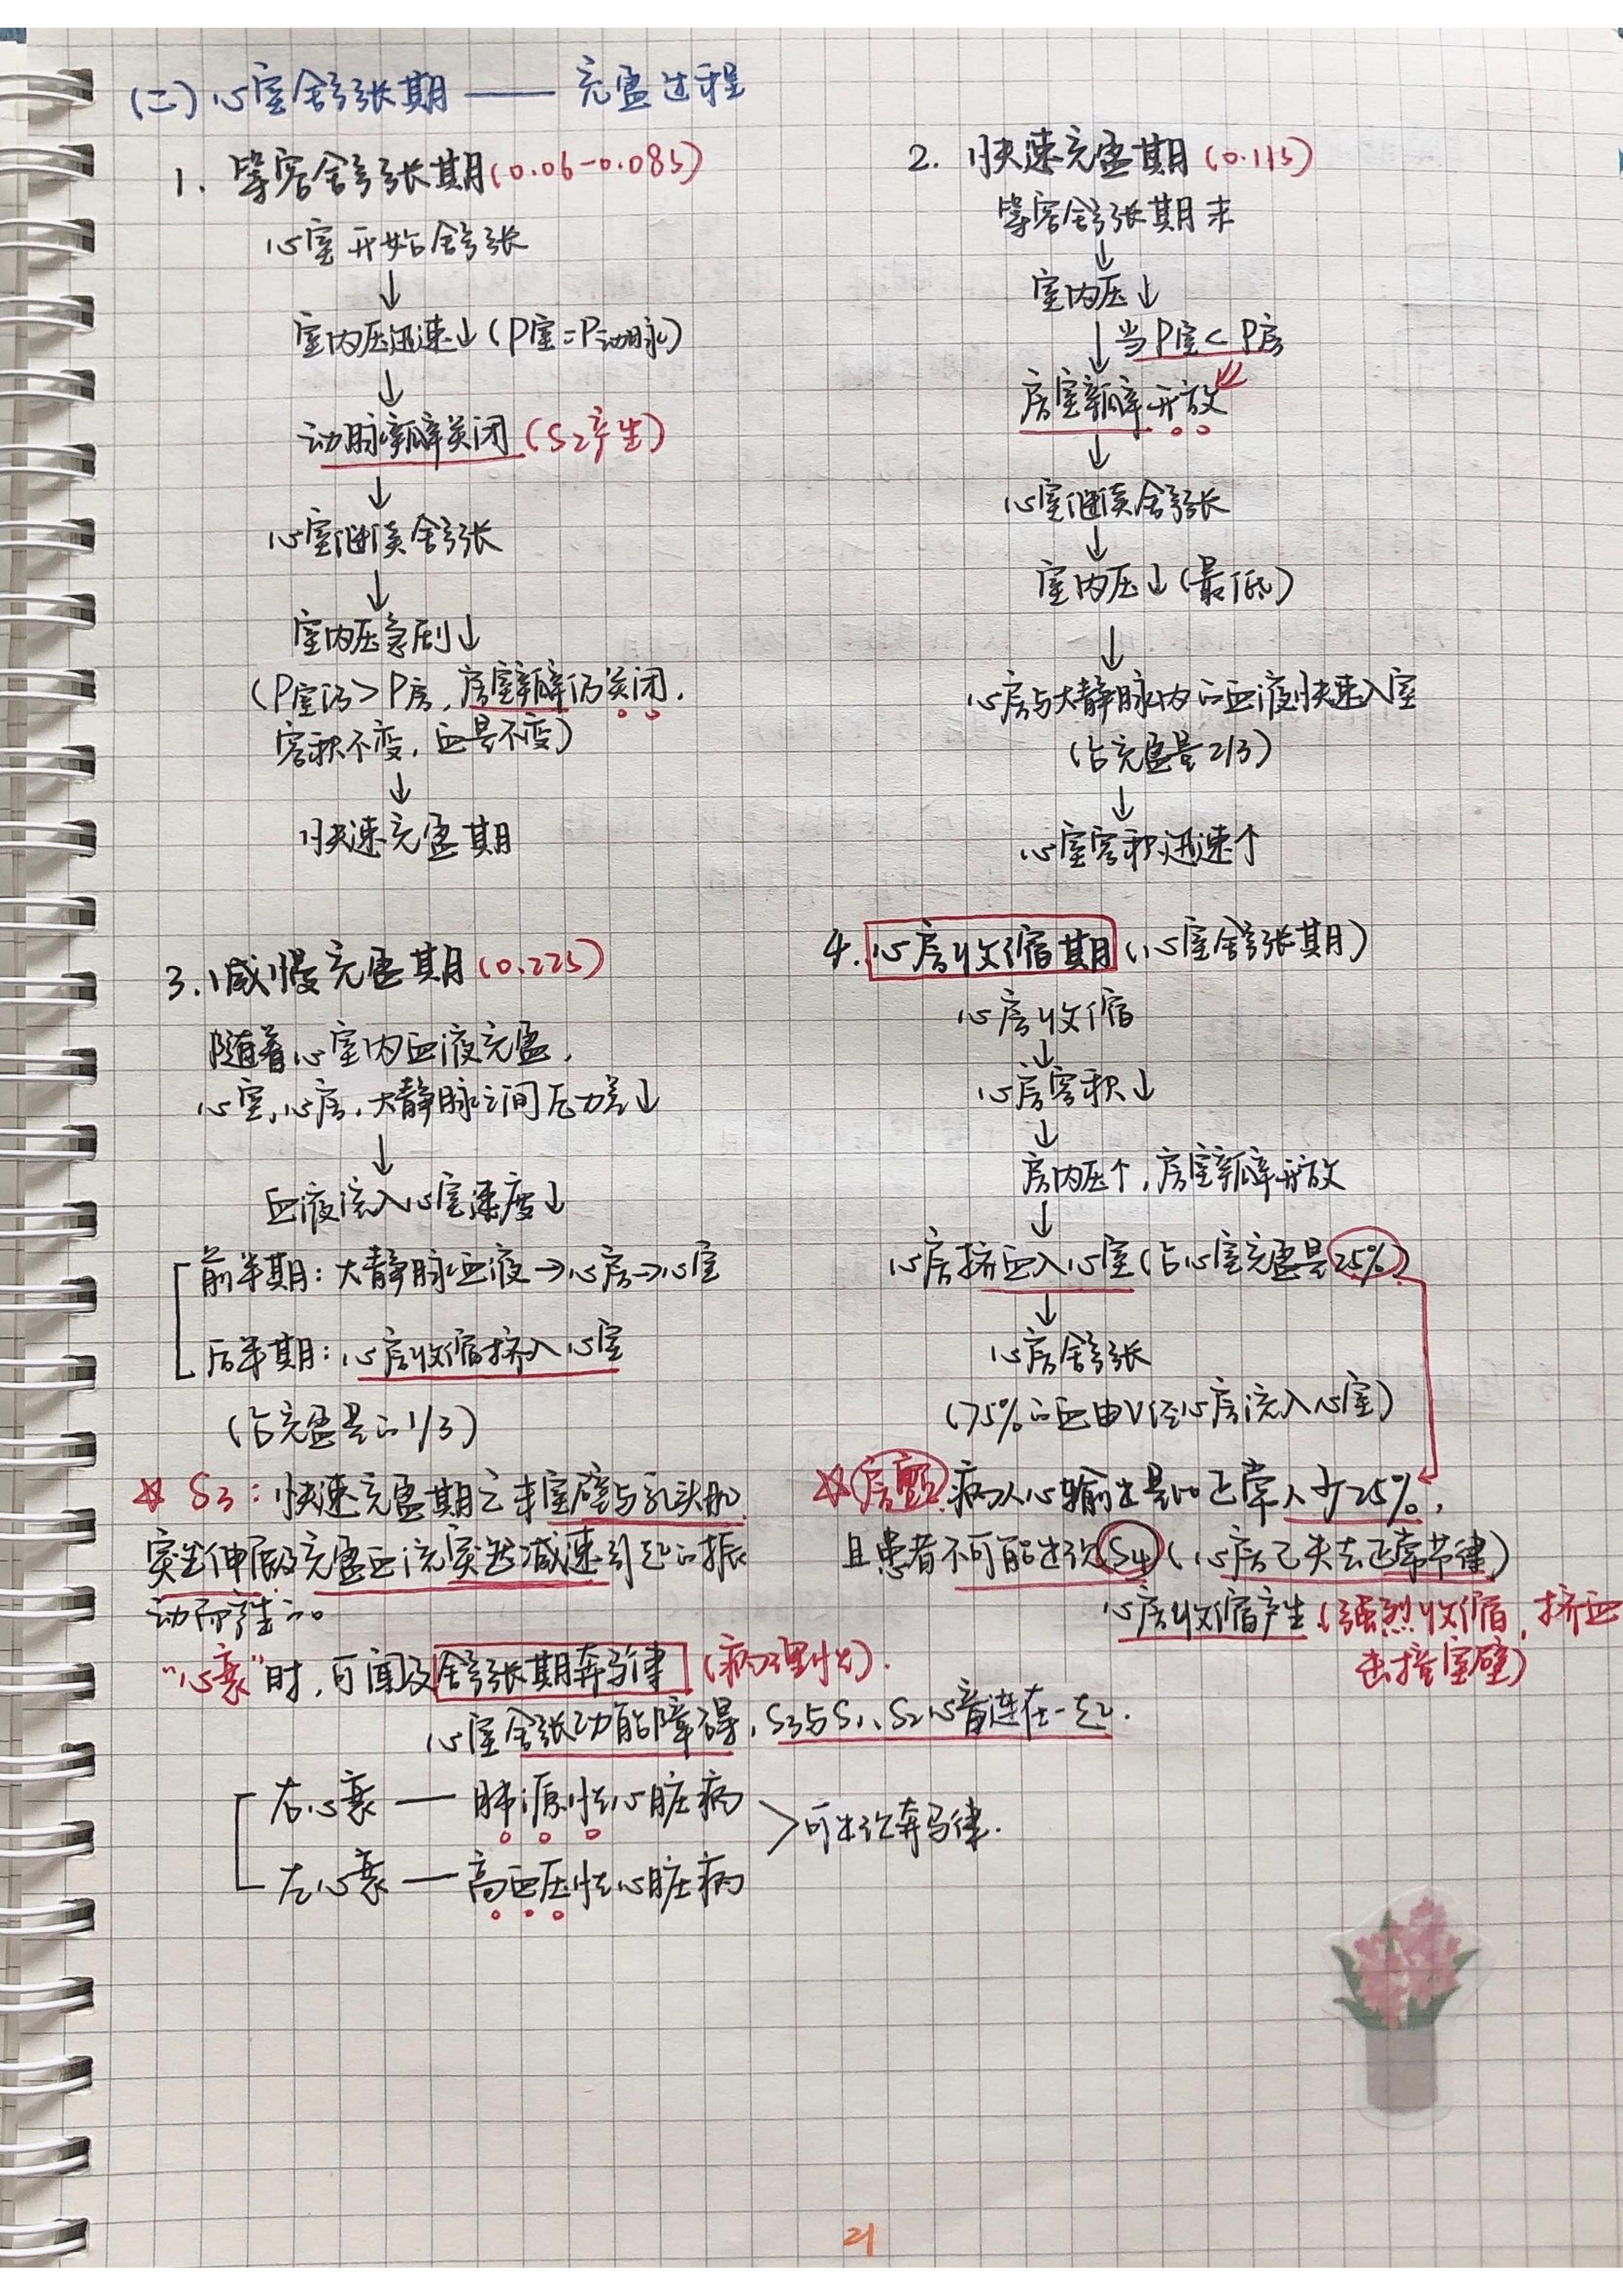 (二)心室舒张期 —— 充盈过程
1. 等容舒张期(0.06-0.08s)
心室开始舒张
↓
室内压迅速↓(P室=P动脉)
↓
动脉瓣关闭(S2产生)
↓
心室继续舒张
↓
室内压急剧↓
(P室仍>P房,房室瓣仍关闭.
容积不变,血量不变)
↓
快速充盈期
2. 快速充盈期(0.11s)
等容舒张期末
↓
室内压↓
↓当P室<P房
房室瓣开放
↓
心室继续舒张
↓
室内压↓(最低)
↓
心房与大静脉内的血液快速入室
(占充盈量2/3)
↓
心室容积迅速↑
3. 减慢充盈期(0.22s)
随着心室内血液充盈,
心室,心房,大静脉之间压力差↓
↓
血液流入心室速度↓
前半期:大静脉血液→心房→心室
后半期:心房收缩挤入心室
(占充盈量的1/3)
☆ S3:快速充盈期之末室壁与乳头肌
突然伸展及充盈血流突然减速引起的振
动而产生的。
“心衰”时,可闻及舒张期奔马律(病理性).
心室舒张功能障碍,S3与S1、S2心音连在一起.
右心衰 — 肺源性心脏病
左心衰 — 高血压性心脏病
>可出现奔马律.
4. 心房收缩期(心室舒张期)
心房收缩
↓
心房容积↓
↓
房内压↑,房室瓣开放
↓
心房挤血入心室(占心室充盈量25%)
↓
心房舒张
(75%的血由V经心房流入心室)
☆房颤病人心输出量比正常人少25%,
且患者不可能出现S4(心房已失去正常节律)
心房收缩产生(强烈收缩,挤血
击撞室壁)
21